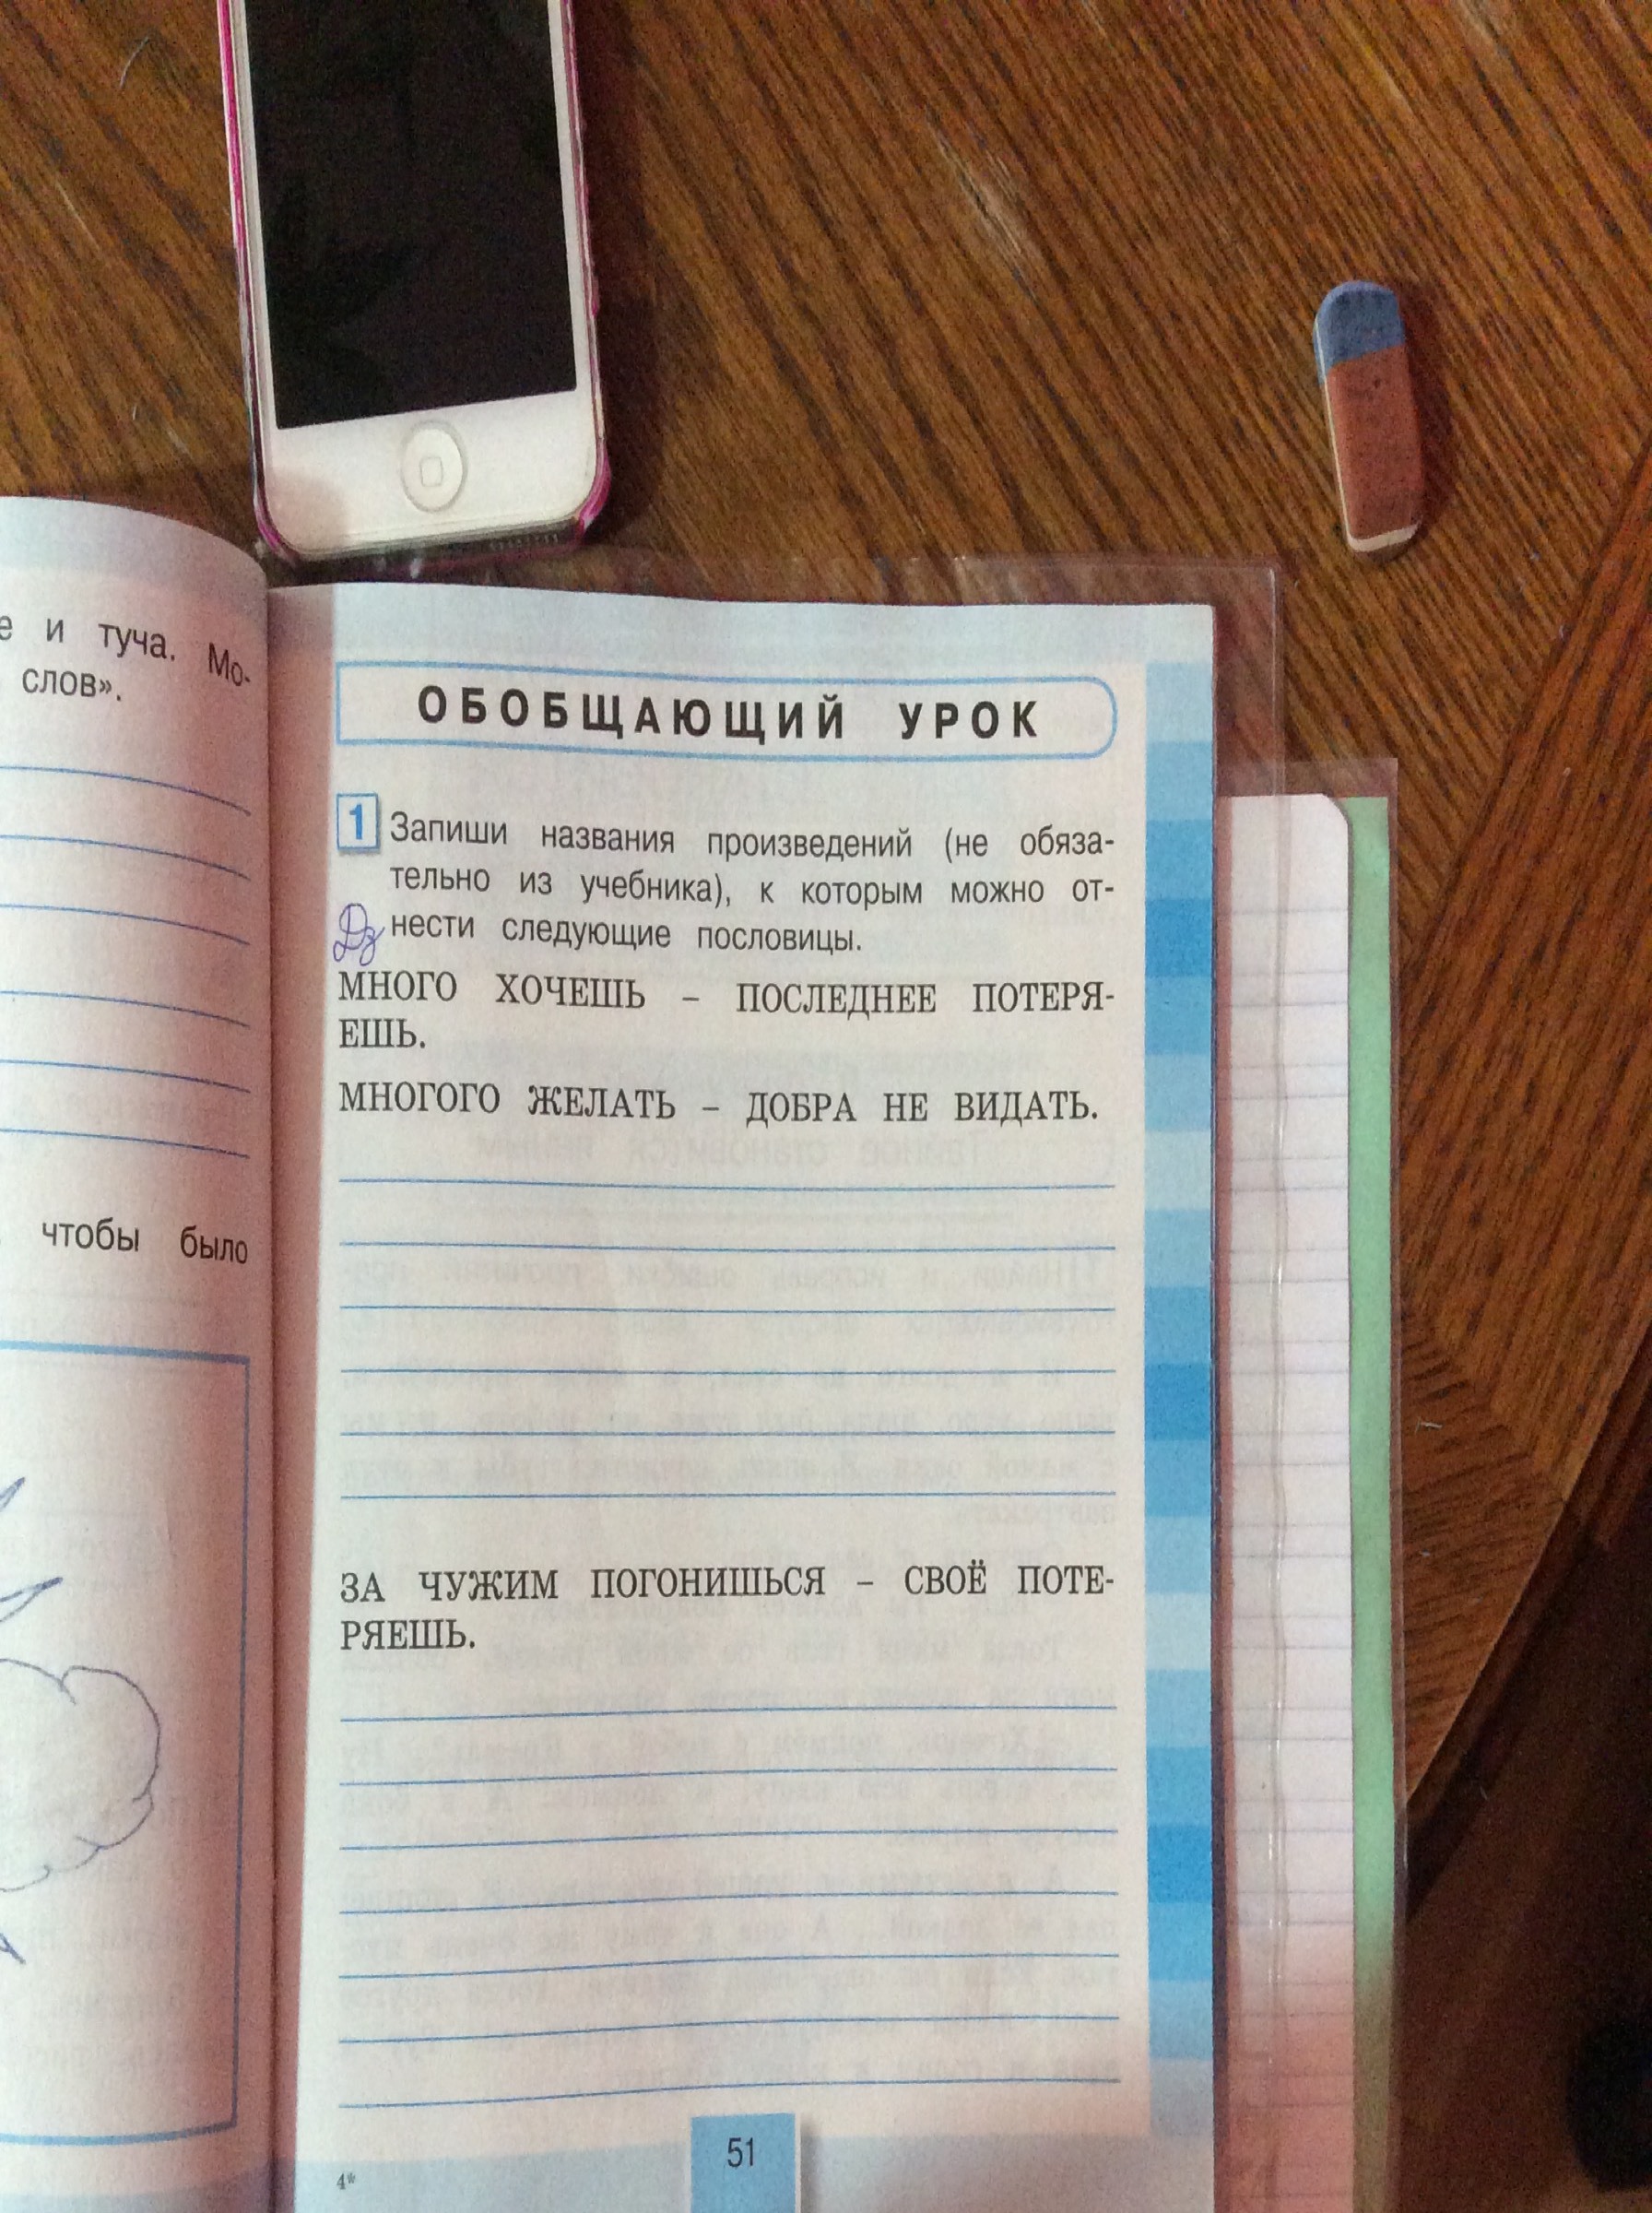 е и туча. Мо-
слов».
чтобы было
ОБОБЩАЮЩИЙ УРОК
1 Запиши названия произведений (не обяза-
тельно из учебника), к которым можно от-
Дз нести следующие пословицы.
МНОГО ХОЧЕШЬ – ПОСЛЕДНЕЕ ПОТЕРЯ-
ЕШЬ.
МНОГОГО ЖЕЛАТЬ – ДОБРА НЕ ВИДАТЬ.
ЗА ЧУЖИМ ПОГОНИШЬСЯ – СВОЁ ПОТЕ-
РЯЕШЬ.
51
4*